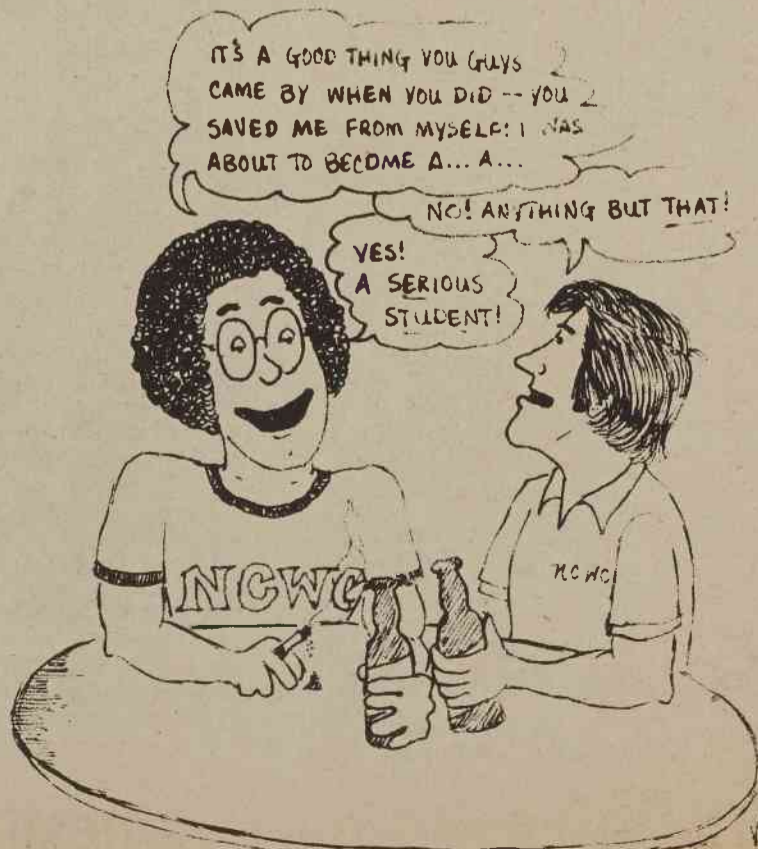 IT'S A GOOD THING YOU GUYS
CAME BY WHEN YOU DID -- YOU
SAVED ME FROM MYSELF! I WAS
ABOUT TO BECOME A... A...
NO! ANYTHING BUT THAT!
YES!
A SERIOUS
STUDENT!
NCWC
NCWC